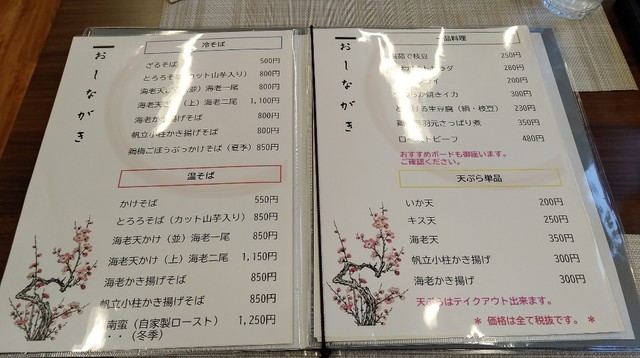 おしながき
冷そば
ざるそば 500円
とろろそば(カット山芋入り) 800円
海老天ざる(並)海老一尾 800円
海老天ざる(上)海老二尾 1,100円
海老かき揚げそば 800円
帆立小柱かき揚げそば 800円
鶏梅ごぼうぶっかけそば(夏季) 850円
温そば
かけそば 550円
とろろそば(カット山芋入り) 850円
海老天かけ(並)海老一尾 850円
海老天かけ(上)海老二尾 1,150円
海老かき揚げそば 850円
帆立小柱かき揚げそば 850円
南蛮(自家製ロースト) 1,250円
・・(冬季)
おしながき
一品料理
茹で枝豆 250円
ダ 280円
200円
焼きイカ 300円
ける牛豆腐(絹・枝豆) 230円
羽元さっぱり煮 350円
ローストビーフ 480円
おすすめボードも御座います。
ご確認ください。
天ぷら単品
いか天 200円
キス天 250円
海老天 350円
帆立小柱かき揚げ 300円
海老かき揚げ 300円
天ぷらはテイクアウト出来ます。
* 価格は全て税抜です。 *